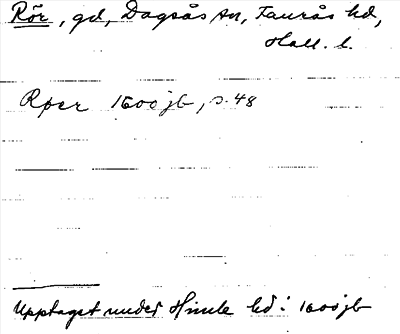 Rör, gd, Dagsås sn, Faurås hd,
Hall. l.
Röer 1600 jb, s. 48
Upptaget under Himle hd i 1600 jb